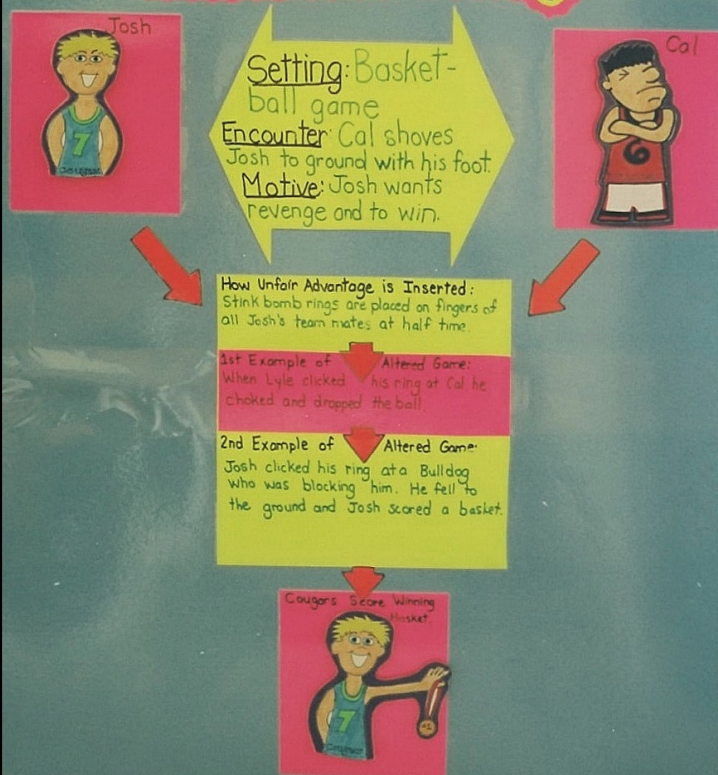 Josh
Cal
Setting: Basket-
ball game
Encounter: Cal shoves
Josh to ground with his foot.
Motive: Josh wants
revenge and to win.
How Unfair Advantage is Inserted:
Stink bomb rings are placed on fingers of
all Josh's team mates at half time.
1st Example of Altered Game:
When Lyle clicked his ring at Cal he
choked and dropped the ball.
2nd Example of Altered Game:
Josh clicked his ring at a Bulldog
who was blocking him. He fell to
the ground and Josh scored a basket.
Cougars Score Winning
Basket
7
6
7
#1